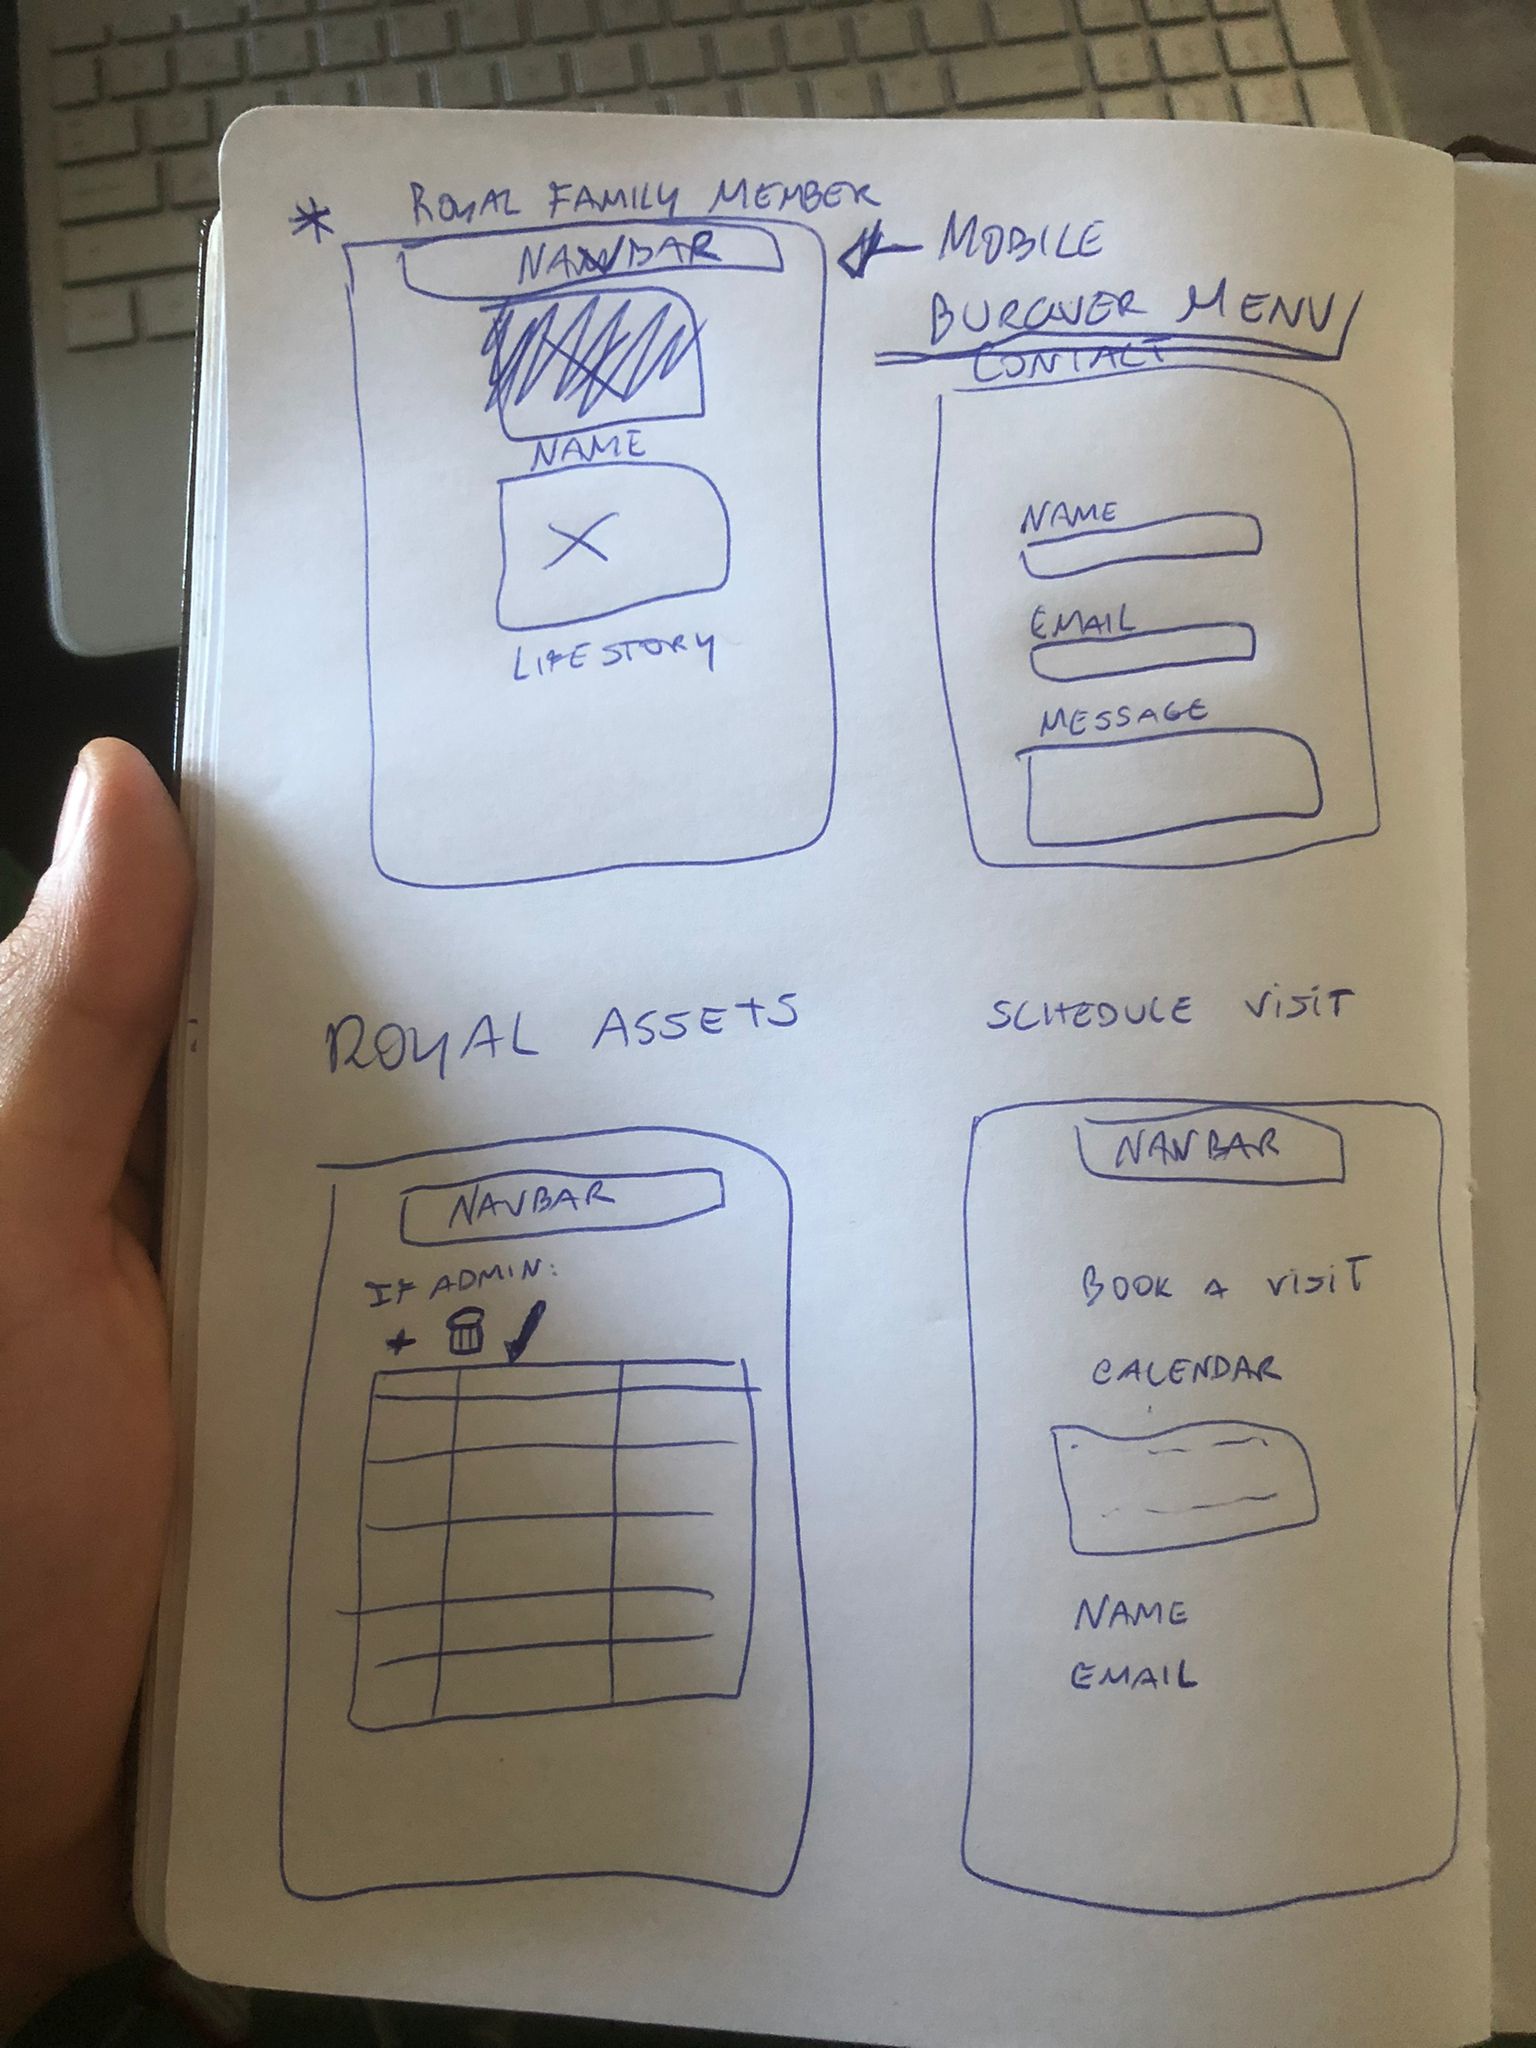 * ROYAL FAMILY MEMBER
NAVBAR
NAME
X
LIFE STORY
MOBILE
BURGUER MENU
CONTACT
NAME
EMAIL
MESSAGE
ROYAL ASSETS
NAVBAR
IF ADMIN:
+
SCHEDULE VISIT
NAVBAR
BOOK A VISIT
CALENDAR
NAME
EMAIL